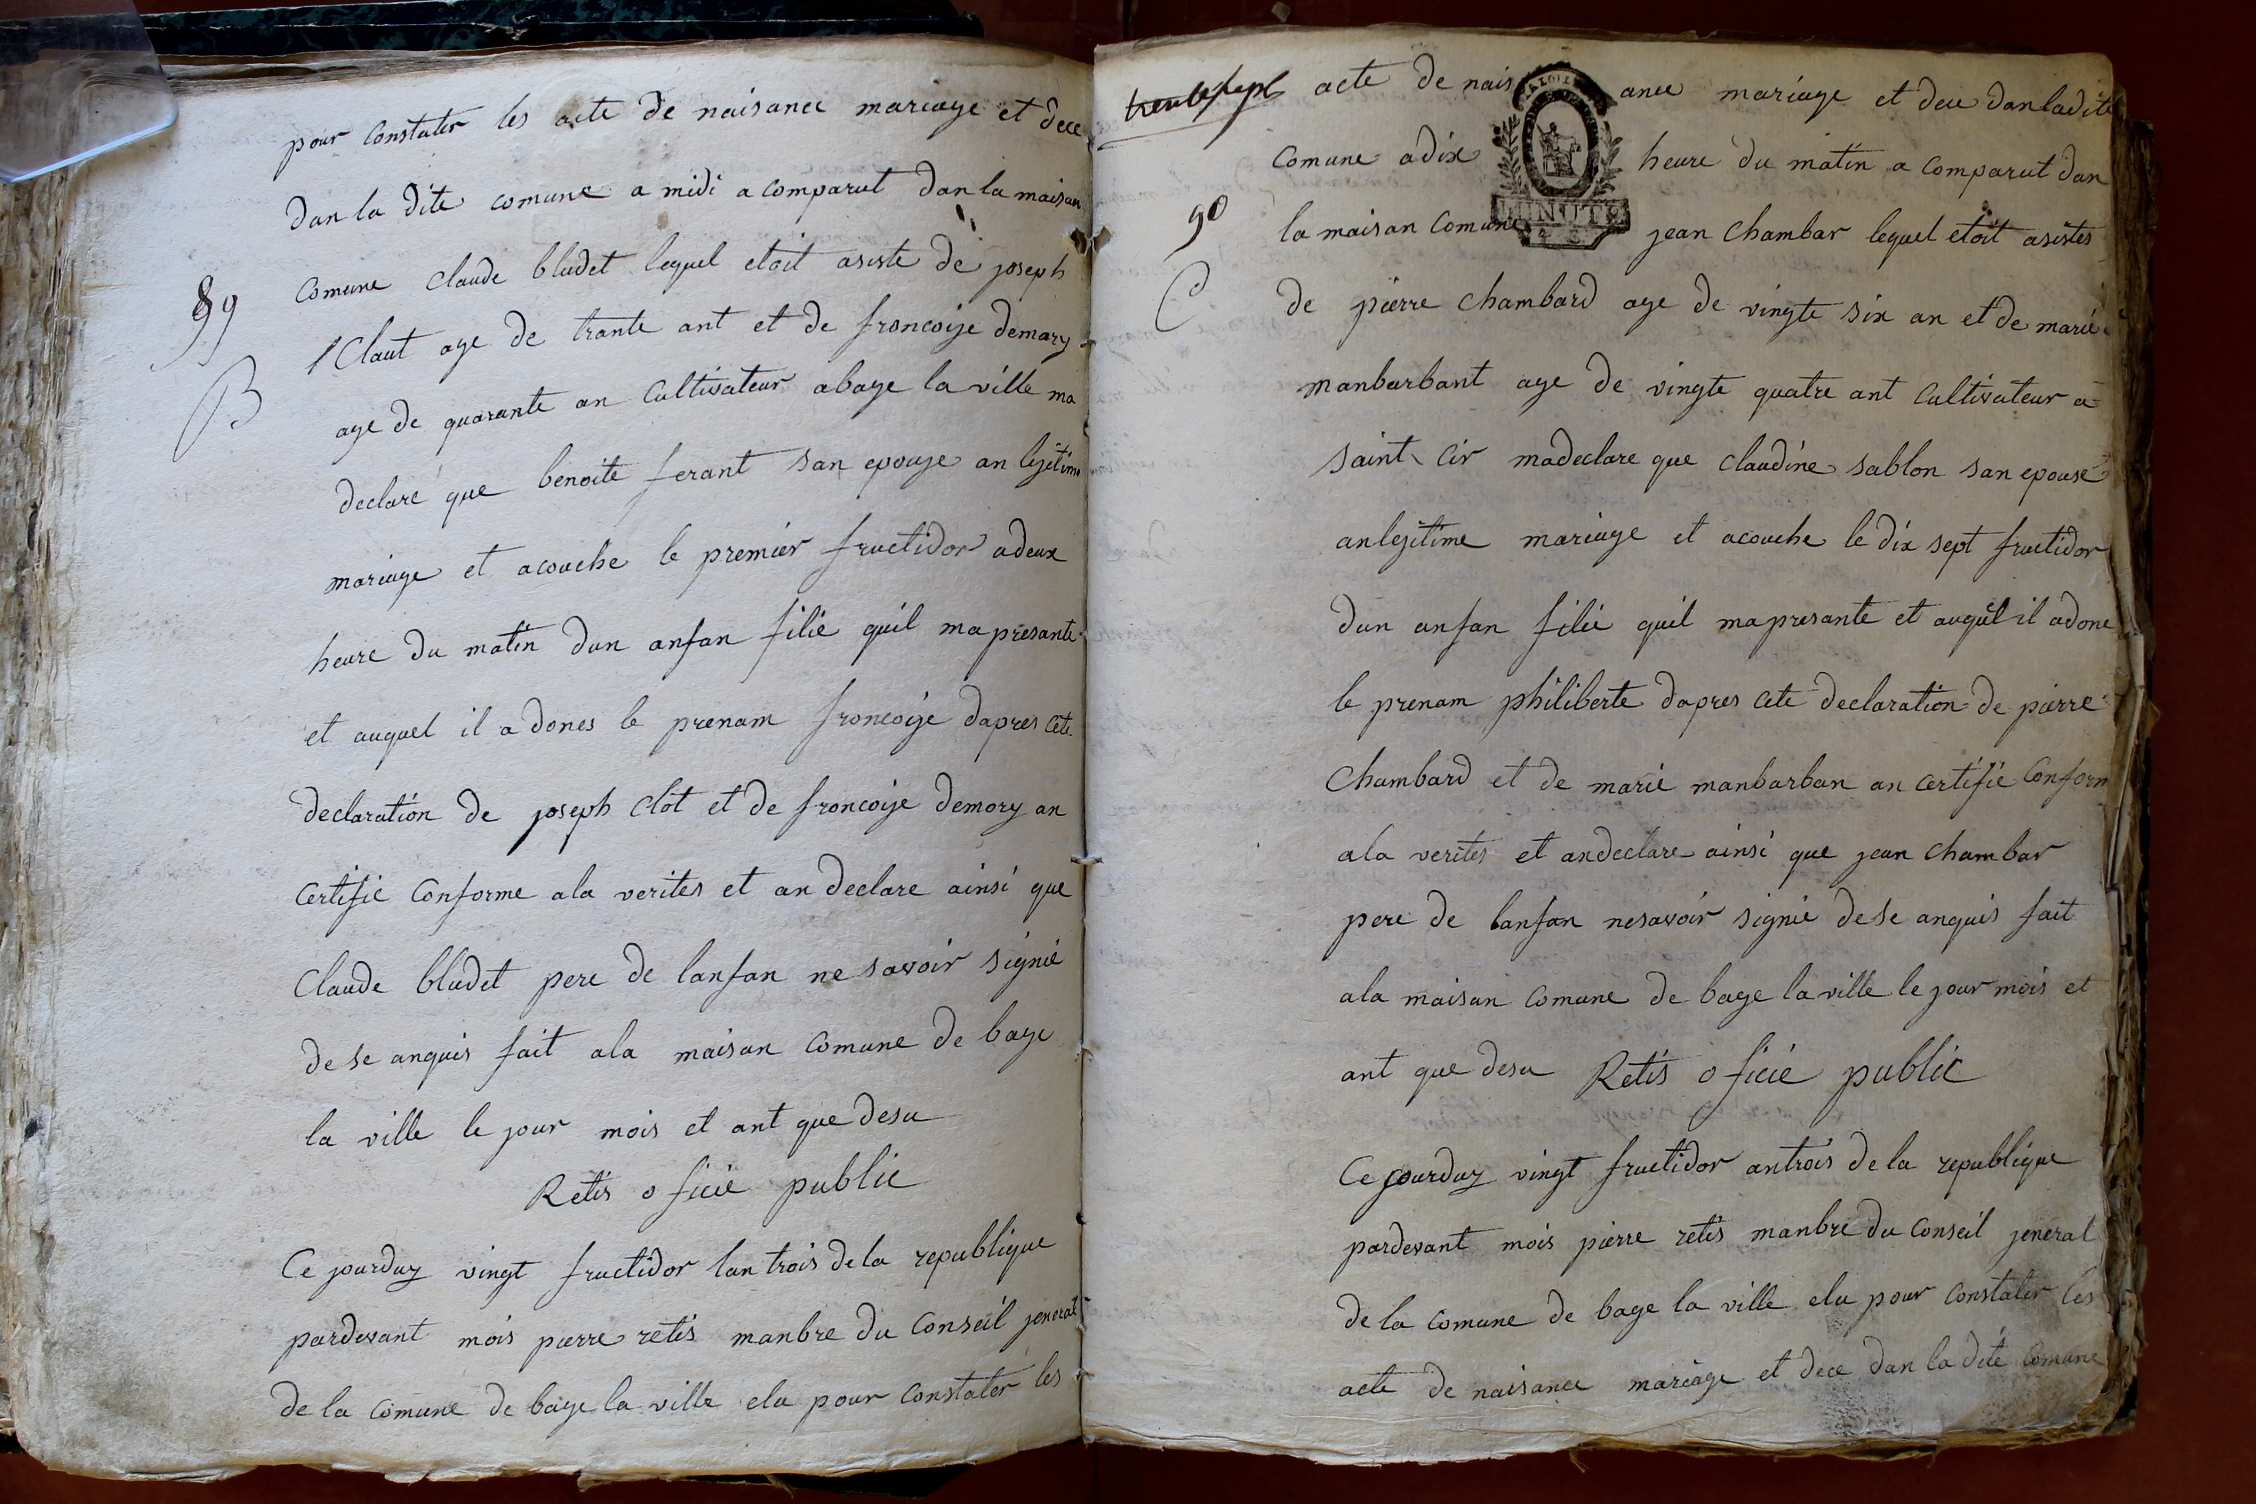 pour constater les acte de naisance mariage et dece
dan la dite comune a midi a comparut dan la maisan
89
comune claude bludet lequel etoit asiste de joseph
Claut age de trante ant et de francoise demary
B
age de quarante an cultivateur a bage la ville ma
declaré que benoite ferant san epouse an legitime
mariage et acouche le premier fructidor a deux
heure du matin dun anfan filie quil ma presante
et auquel il a dones le prenam francoise dapres cete
declaration de joseph clot et de francoise demory an
certifie conforme a la verites et an declare ainsi que
claude bludet pere de lanfan ne savoir signié
de se anquis fait a la maisan comune de bage
la ville le jour mois et ant que desu
Retis oficié public
Ce jourduy vingt fructidor lan trois de la republique
pardevant mois pierre retis manbre du conseil jeneral
de la comune de bage la ville elu pour constater les
trente sept
acte de naisance mariage et dece dan ladite
comune a dix heure du matin a comparut dan
MINUTE
90
la maisan comune jean chambar lequel etoit asistes
C
de pierre chambard age de vingte six an et de marie
manbarbant age de vingte quatre ant cultivateur a
saint cir ma declare que claudine sablon san epouse
an legitime mariage et acouche le dix sept fructidor
dun anfan filie quil ma presante et auquel il a done
le prenam philiberte dapres cete declaration de pierre
chambard et de marie manbarban an certifie conform
a la verites et an declare ainsi que jean chambar
pere de lanfan ne savoir signié de se anquis fait
a la maisan comune de bage la ville le jour mois et
ant que desu Retis oficié public
Ce jourduy vingt fructidor an trois de la republique
pardevant mois pierre retis manbre du conseil jeneral
de la comune de bage la ville elu pour constater les
acte de naisance mariage et dece dan la dite comune